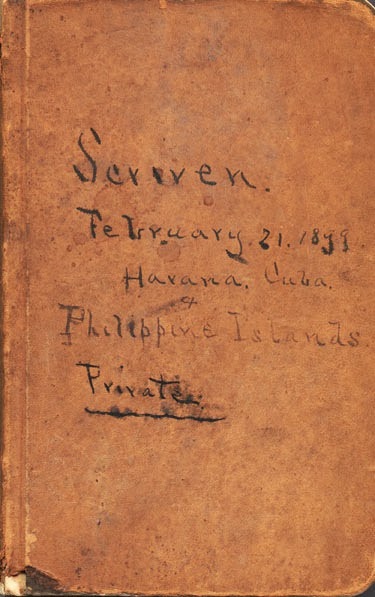 Scriven.
February 21. 1899.
Havana, Cuba.
&
Philippine Islands
Private.